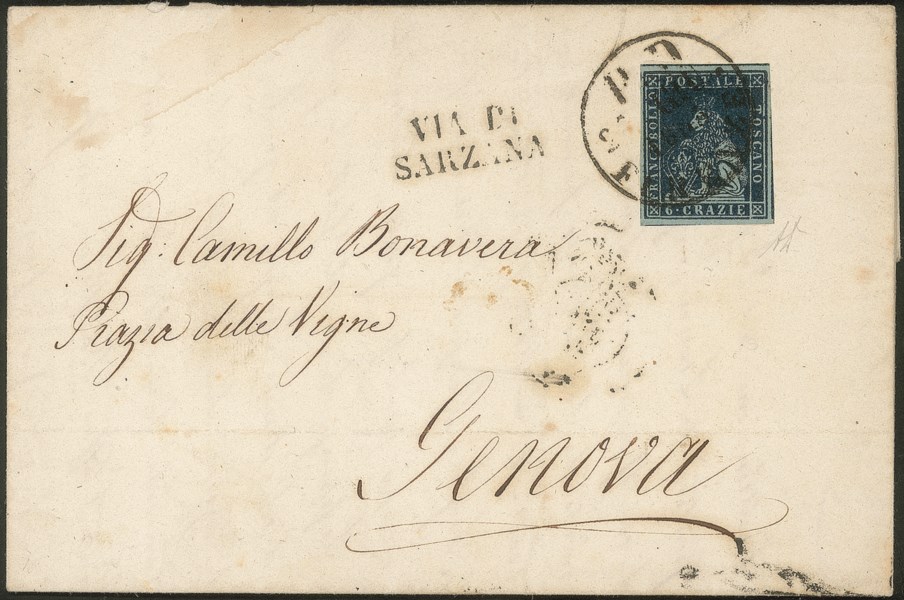 P.D
VIA DI
SARZANA
FRANCOBOLLO
POSTALE
TOSCANO
6·CRAZIE
Sig. Camillo Bonavera
Piazza delle Vigne
Genova